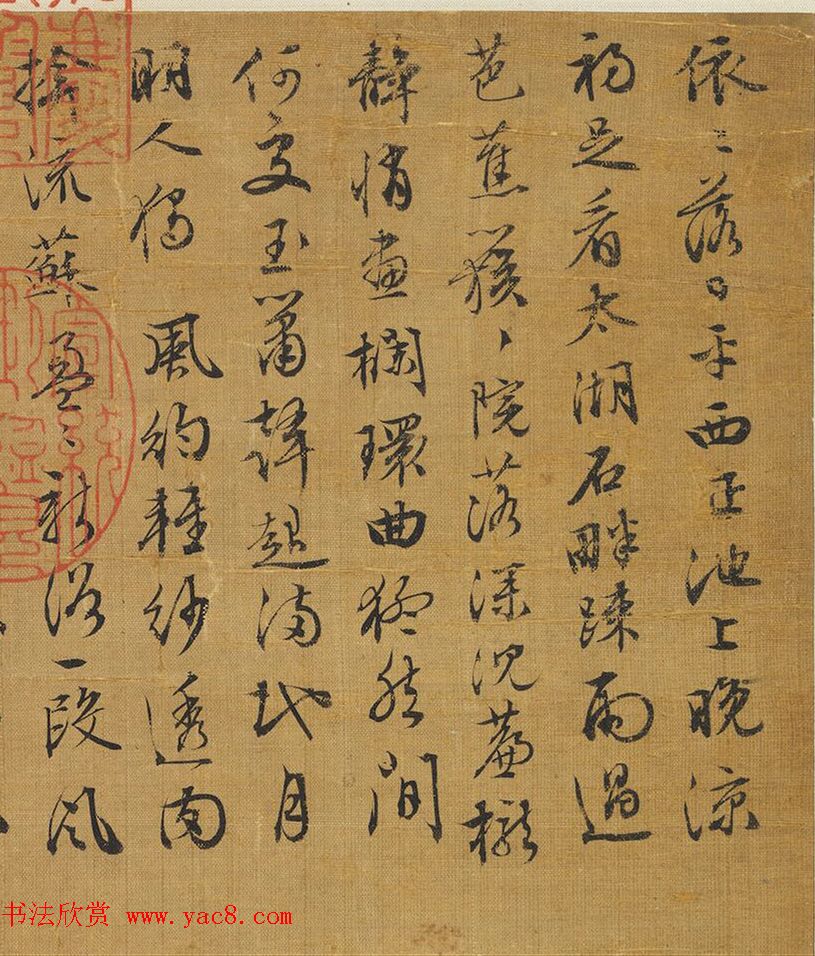 依〻落日平西正池上晚涼
初足看太湖石畔踈雨過
芭蕉簇〻院落深沉簾櫳
靜悄畫欄環曲猛然間
何處玉簫聲起滿地月
明人獨 風約輕紗透肉
揜流蘇盈〻新浴一段風
书法欣赏 www.yac8.com